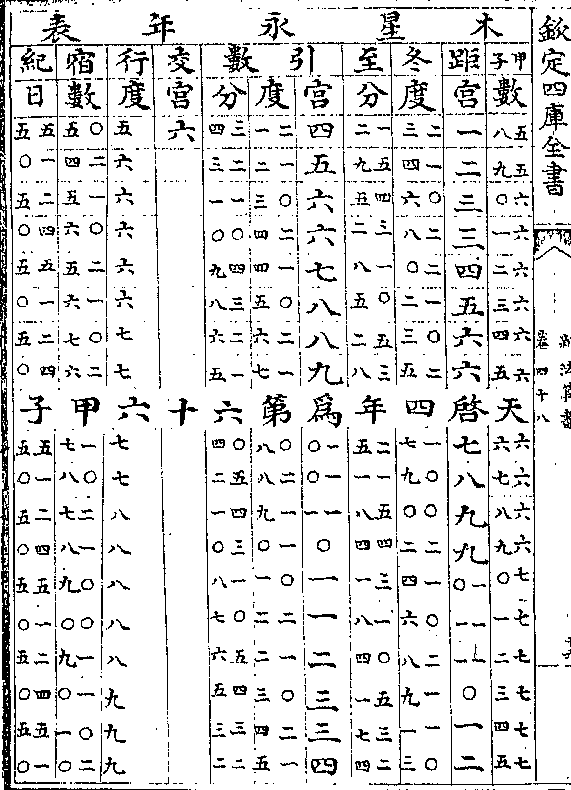 欽定四庫全書
木星永年表
甲子 距 冬 至 引 數 交 行 宿 紀
數 宮 度 分 宮 度 分 宮 度 數 日
五八 一 二三 一二 四 二一 三四 六 五 〇五 五五
五九 二 一四 五九 五 一二 二三 六 二四 一〇
六〇 三 〇六 四五 六 〇三 一一 六 一五 二五
六一 三 二八 三二 六 二四 〇〇 六 〇六 四〇
六二 四 二〇 一八 七 一四 四九 六 二五 五五
六三 五 一二 〇五 八 〇五 三八 六 一六 一〇
六四 六 〇三 五二 八 二六 二六 七 〇七 二五
六五 六 二五 三八 九 一七 一五 七 二六 四〇
天啓四年爲第六十六甲子
六六 七 一七 二五 一〇 〇八 〇四 七 一七 五五
六七 八 〇九 一一 一〇 二八 五二 七 〇八 一〇
六八 九 〇〇 五八 一一 一九 四一 八 二七 二五
六九 九 二二 四四 〇 一〇 三〇 八 一八 四〇
七〇 一〇 一四 三一 一 〇一 一八 八 〇九 五五
七一 一一 〇六 一八 一 二二 〇七 八 〇〇 一〇
七二 一一 二八 〇四 二 一二 五六 八 一九 二五
七三 〇 一九 五一 三 〇三 四五 九 一〇 四〇
七四 一 一一 三七 三 二四 三三 九 〇一 五五
七五 二 〇三 二四 四 一五 二二 九 二〇 一〇
新法算書
卷四十八